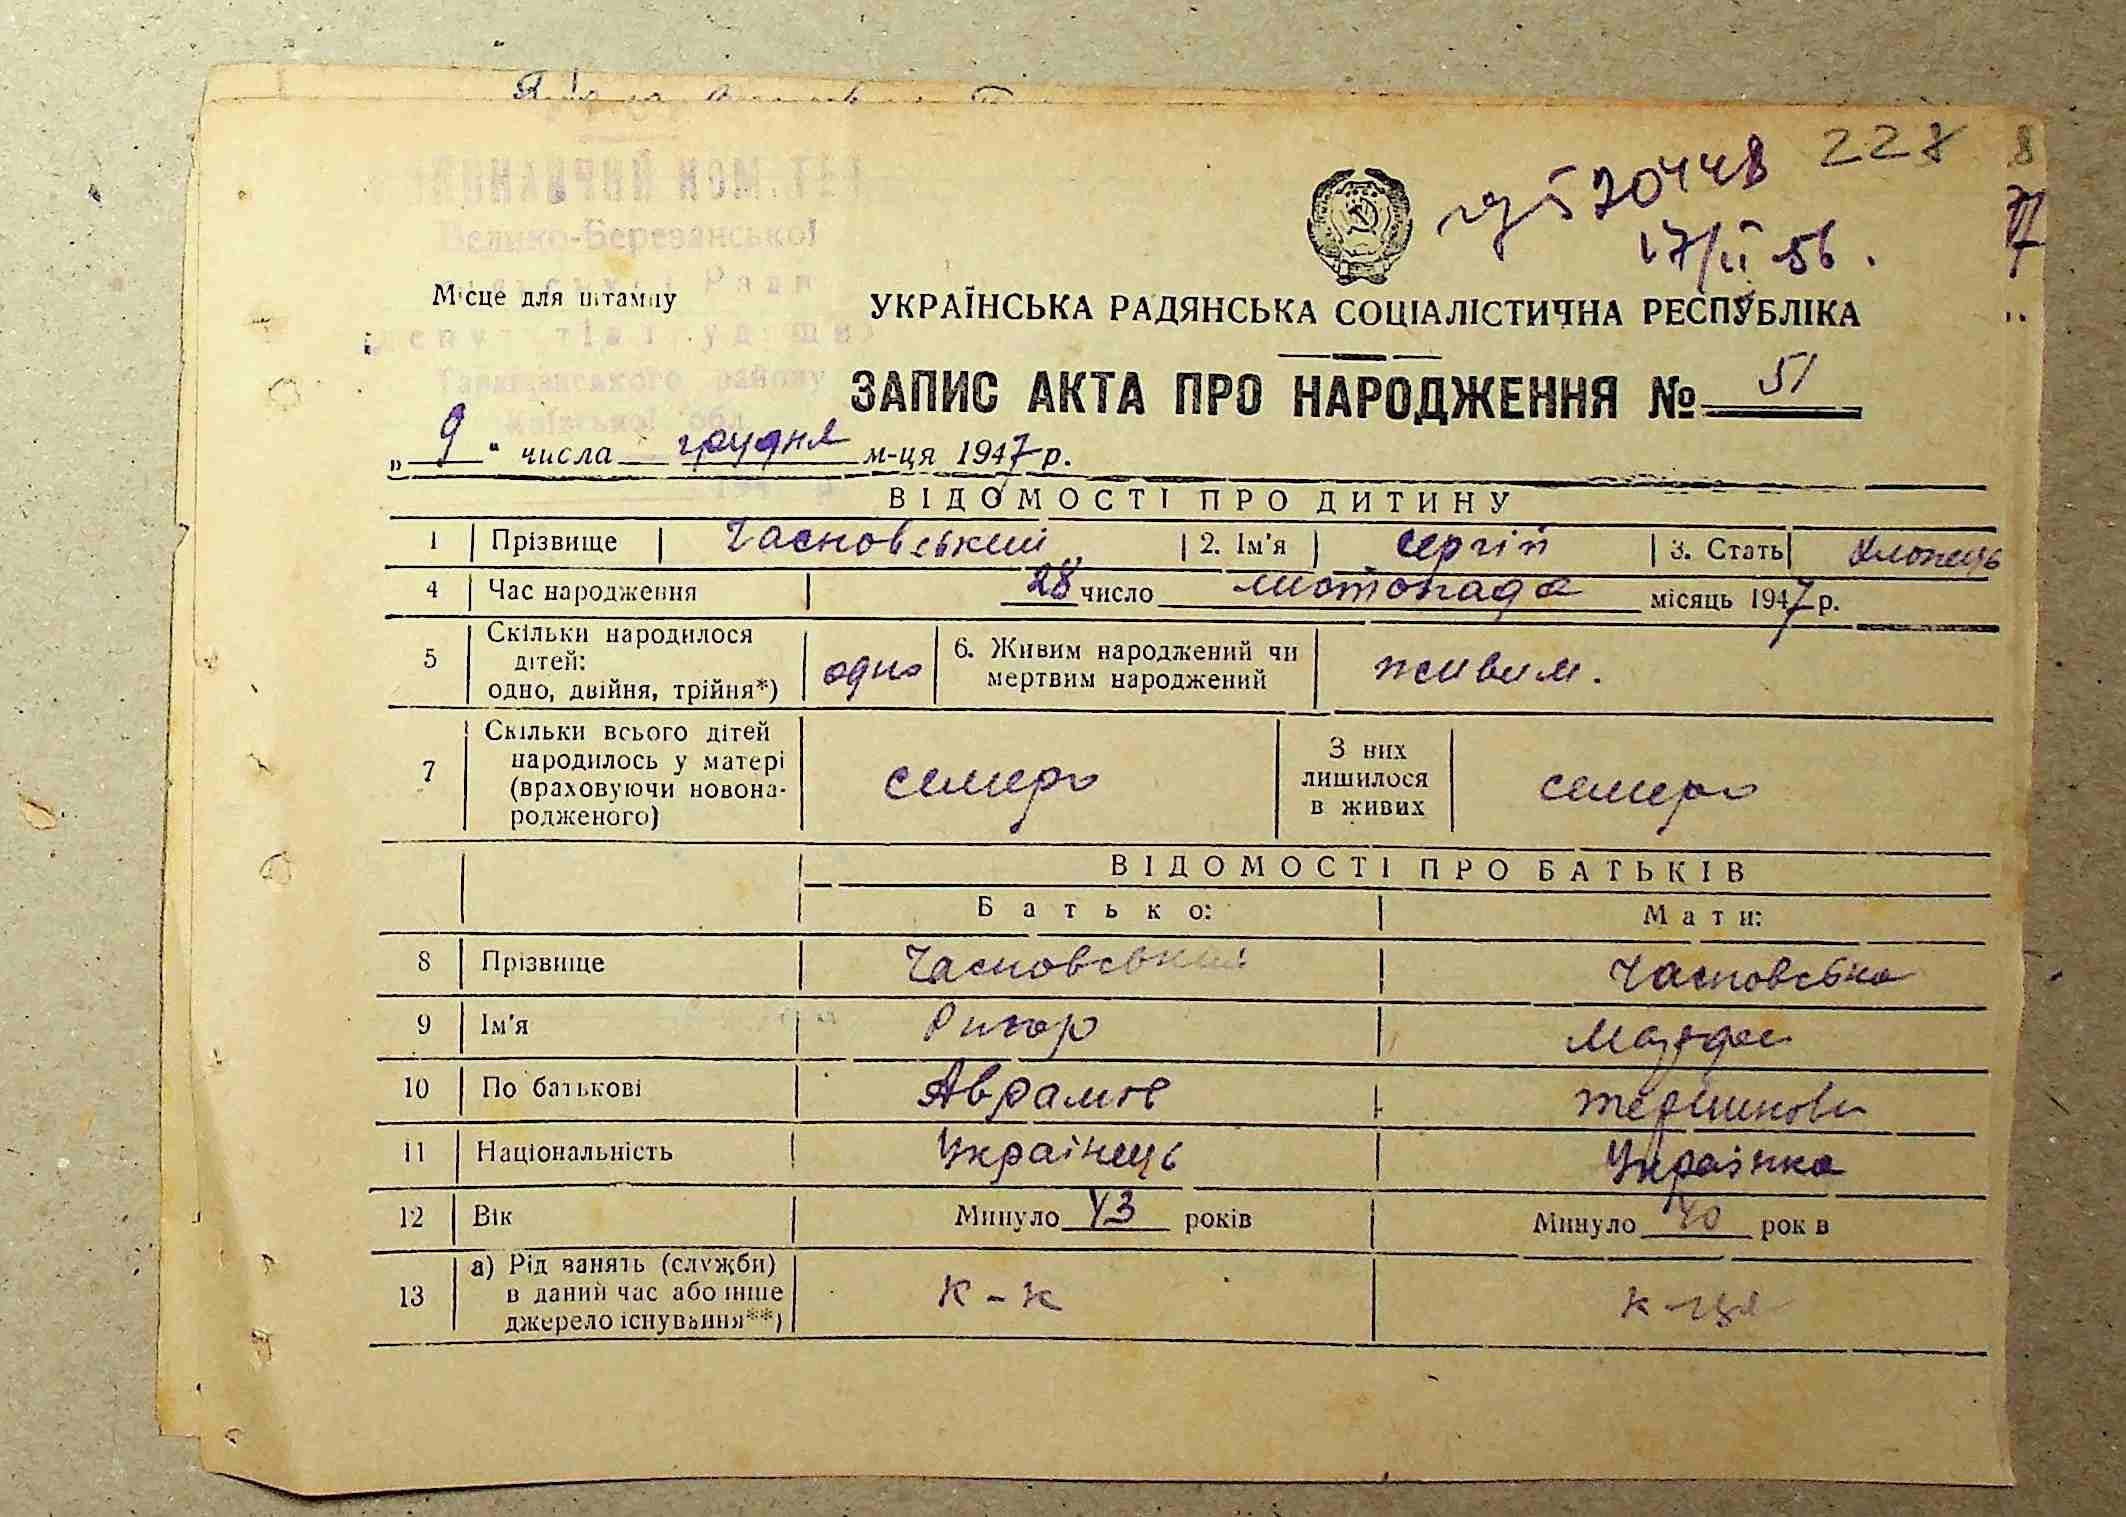 228
17/II 56.
Велико-Березанської
Ради
Таращанського району
Київської обл
Місце для штампу
УКРАЇНСЬКА РАДЯНСЬКА СОЦІАЛІСТИЧНА РЕСПУБЛІКА
ЗАПИС АКТА ПРО НАРОДЖЕННЯ № 51
„ 9 " числа грудня м-ця 1947 р.
ВІДОМОСТІ ПРО ДИТИНУ
1 Прізвище Часновський 2. Ім'я Сергій 3. Стать хлопець
4 Час народження 28 число листопада місяць 1947 р.
5 Скільки народилося дітей: одно, двійня, трійня*) одно 6. Живим народжений чи мертвим народжений живим.
7 Скільки всього дітей народилось у матері (враховуючи новонародженого) семеро З них лишилося в живих семеро
ВІДОМОСТІ ПРО БАТЬКІВ
Батько: Мати:
8 Прізвище Часновський Часновська
9 Ім'я
10 По батькові Аврамов
11 Національність Українець Українка
12 Вік Минуло 43 років Минуло 40 років
13 а) Рід занять (служби) в даний час або інше джерело існування**) к-к к-ця